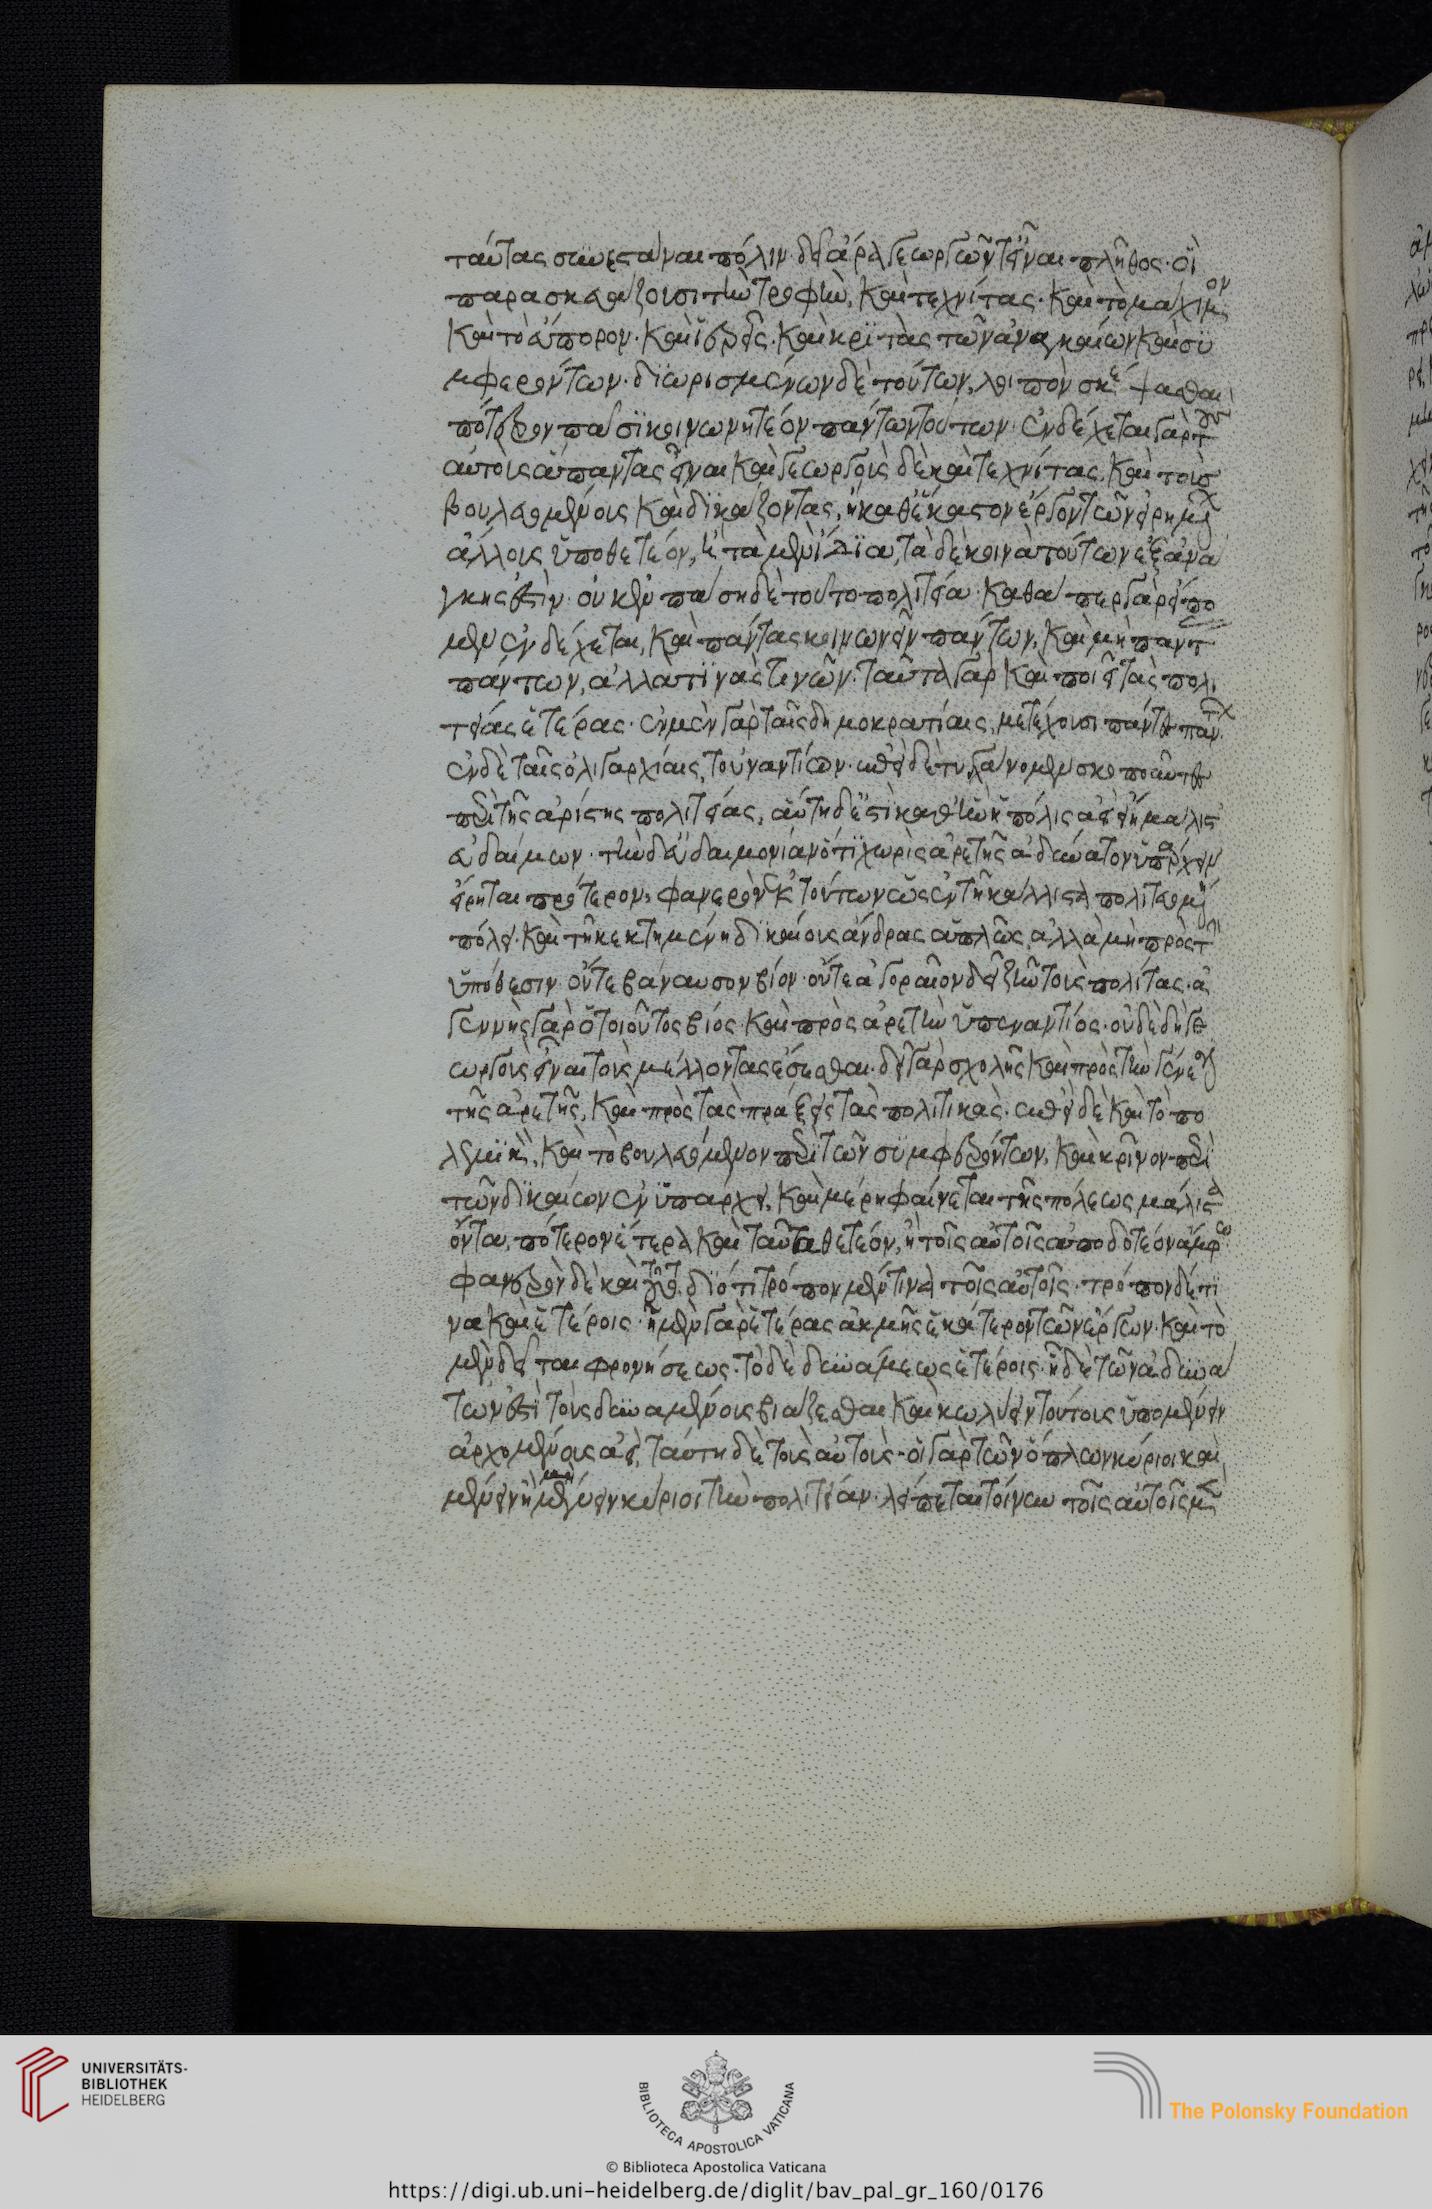 ταύτας συνεστάναι πόλιν· δεῖ ἄρα γεωργῶν τ' εἶναι πλῆθος· οἳ
παρασκευάζουσι τὴν τροφὴν, καὶ τεχνίτας· καὶ τὸ μάχιμον
καὶ τὸ εὔπορον· καὶ ἱερεῖς· καὶ κριτὰς τῶν ἀναγκαίων καὶ συ
μφερόντων· διωρισμένων δὲ τούτων, λοιπὸν σκέψασθαι
πότερον πᾶσι κοινωνητέον πάντων τούτων· ἐνδέχεται γὰρ τοὺς
αὐτοὺς ἅπαντας εἶναι καὶ γεωργοὺς δὲ καὶ τεχνίτας, καὶ τοὺς
βουλευομένους καὶ δικάζοντας, ἢ καθ' ἕκαστον ἔργον τῶν εἰρημένων
ἄλλους ὑποθετέον, ἢ τὰ μὲν ἴδια, τὰ δὲ κοινὰ τούτων ἐξ ἀνά
γκης ἐστίν· οὐκ ἐν πάσῃ δὲ τοῦτο πολιτείᾳ· καθάπερ γὰρ εἴπο
μεν ἐνδέχεται, καὶ πάντας κοινωνεῖν πάντων, καὶ μὴ πάντας
πάντων, ἀλλὰ τινὰς τινῶν· ταῦτα γὰρ καὶ ποιεῖ τὰς πολι
τείας ἑτέρας· ἐν μὲν γὰρ ταῖς δημοκρατίαις, μετέχουσι πάντες πάντων·
ἐν δὲ ταῖς ὀλιγαρχίαις, τοὐναντίον· ἐπεὶ δὲ τυγχάνομεν σκοποῦντες
περὶ τῆς ἀρίστης πολιτείας, αὕτη δ' ἐστὶ καθ' ἣν ἡ πόλις ἂν εἴη μάλιστ'
εὐδαίμων· τὴν δ' εὐδαιμονίαν ὅτι χωρὶς ἀρετῆς ἀδύνατον ὑπάρχειν
εἴρηται πρότερον, φανερὸν ἐκ τούτων ὡς ἐν τῇ κάλλιστα πολιτευομένῃ
πόλει· καὶ τῇ κεκτημένῃ δικαίους ἄνδρας ἁπλῶς, ἀλλὰ μὴ πρὸς τὴν
ὑπόθεσιν· οὔτε βάναυσον βίον· οὔτε ἀγοραῖον δεῖ ζῆν τοὺς πολίτας· ἀ
γεννὴς γὰρ ὁ τοιοῦτος βίος· καὶ πρὸς ἀρετὴν ὑπεναντίος· οὐδὲ δὴ γε
ωργοὺς εἶναι τοὺς μέλλοντας ἔσεσθαι· δεῖ γὰρ σχολῆς καὶ πρὸς τὴν γένεσιν
τῆς ἀρετῆς, καὶ πρὸς τὰς πράξεις τὰς πολιτικάς· ἐπεὶ δὲ καὶ τὸ πο
λεμικὸν, καὶ τὸ βουλευόμενον περὶ τῶν συμφερόντων, καὶ κρῖνον περὶ
τῶν δικαίων ἐνυπάρχει, καὶ μέρη φαίνεται τῆς πόλεως μάλιστα
ὄντα, πότερον ἕτερα καὶ ταῦτα θετέον, ἢ τοῖς αὐτοῖς ἀποδοτέον ἄμφω·
φανερὸν δὲ καὶ τοῦτο, διότι τρόπον μέν τινα τοῖς αὐτοῖς· τρόπον δέ τι
να καὶ ἑτέροις· ᾗ μὲν γὰρ ἑτέρας ἀκμῆς ἑκάτερον τῶν ἔργων· καὶ τὸ
μὲν δεῖται φρονήσεως· τὸ δὲ δυνάμεως ἑτέροις· ᾗ δὲ τῶν ἀδυνά
των ἐστὶ τοὺς δυναμένους βιάζεσθαι καὶ κωλύειν τούτους ὑπομένειν
ἀρχομένους ἀεὶ, ταύτῃ δὲ τοὺς αὐτούς· οἱ γὰρ τῶν ὅπλων κύριοι καὶ
μένειν ἢ μὴ μένειν κύριοι τὴν πολιτείαν· λείπεται τοίνυν τοῖς αὐτοῖς μὲν
UNIVERSITÄTS-
BIBLIOTHEK
HEIDELBERG
BIBLIOTECA APOSTOLICA VATICANA
The Polonsky Foundation
© Biblioteca Apostolica Vaticana
https://digi.ub.uni-heidelberg.de/diglit/bav_pal_gr_160/0176